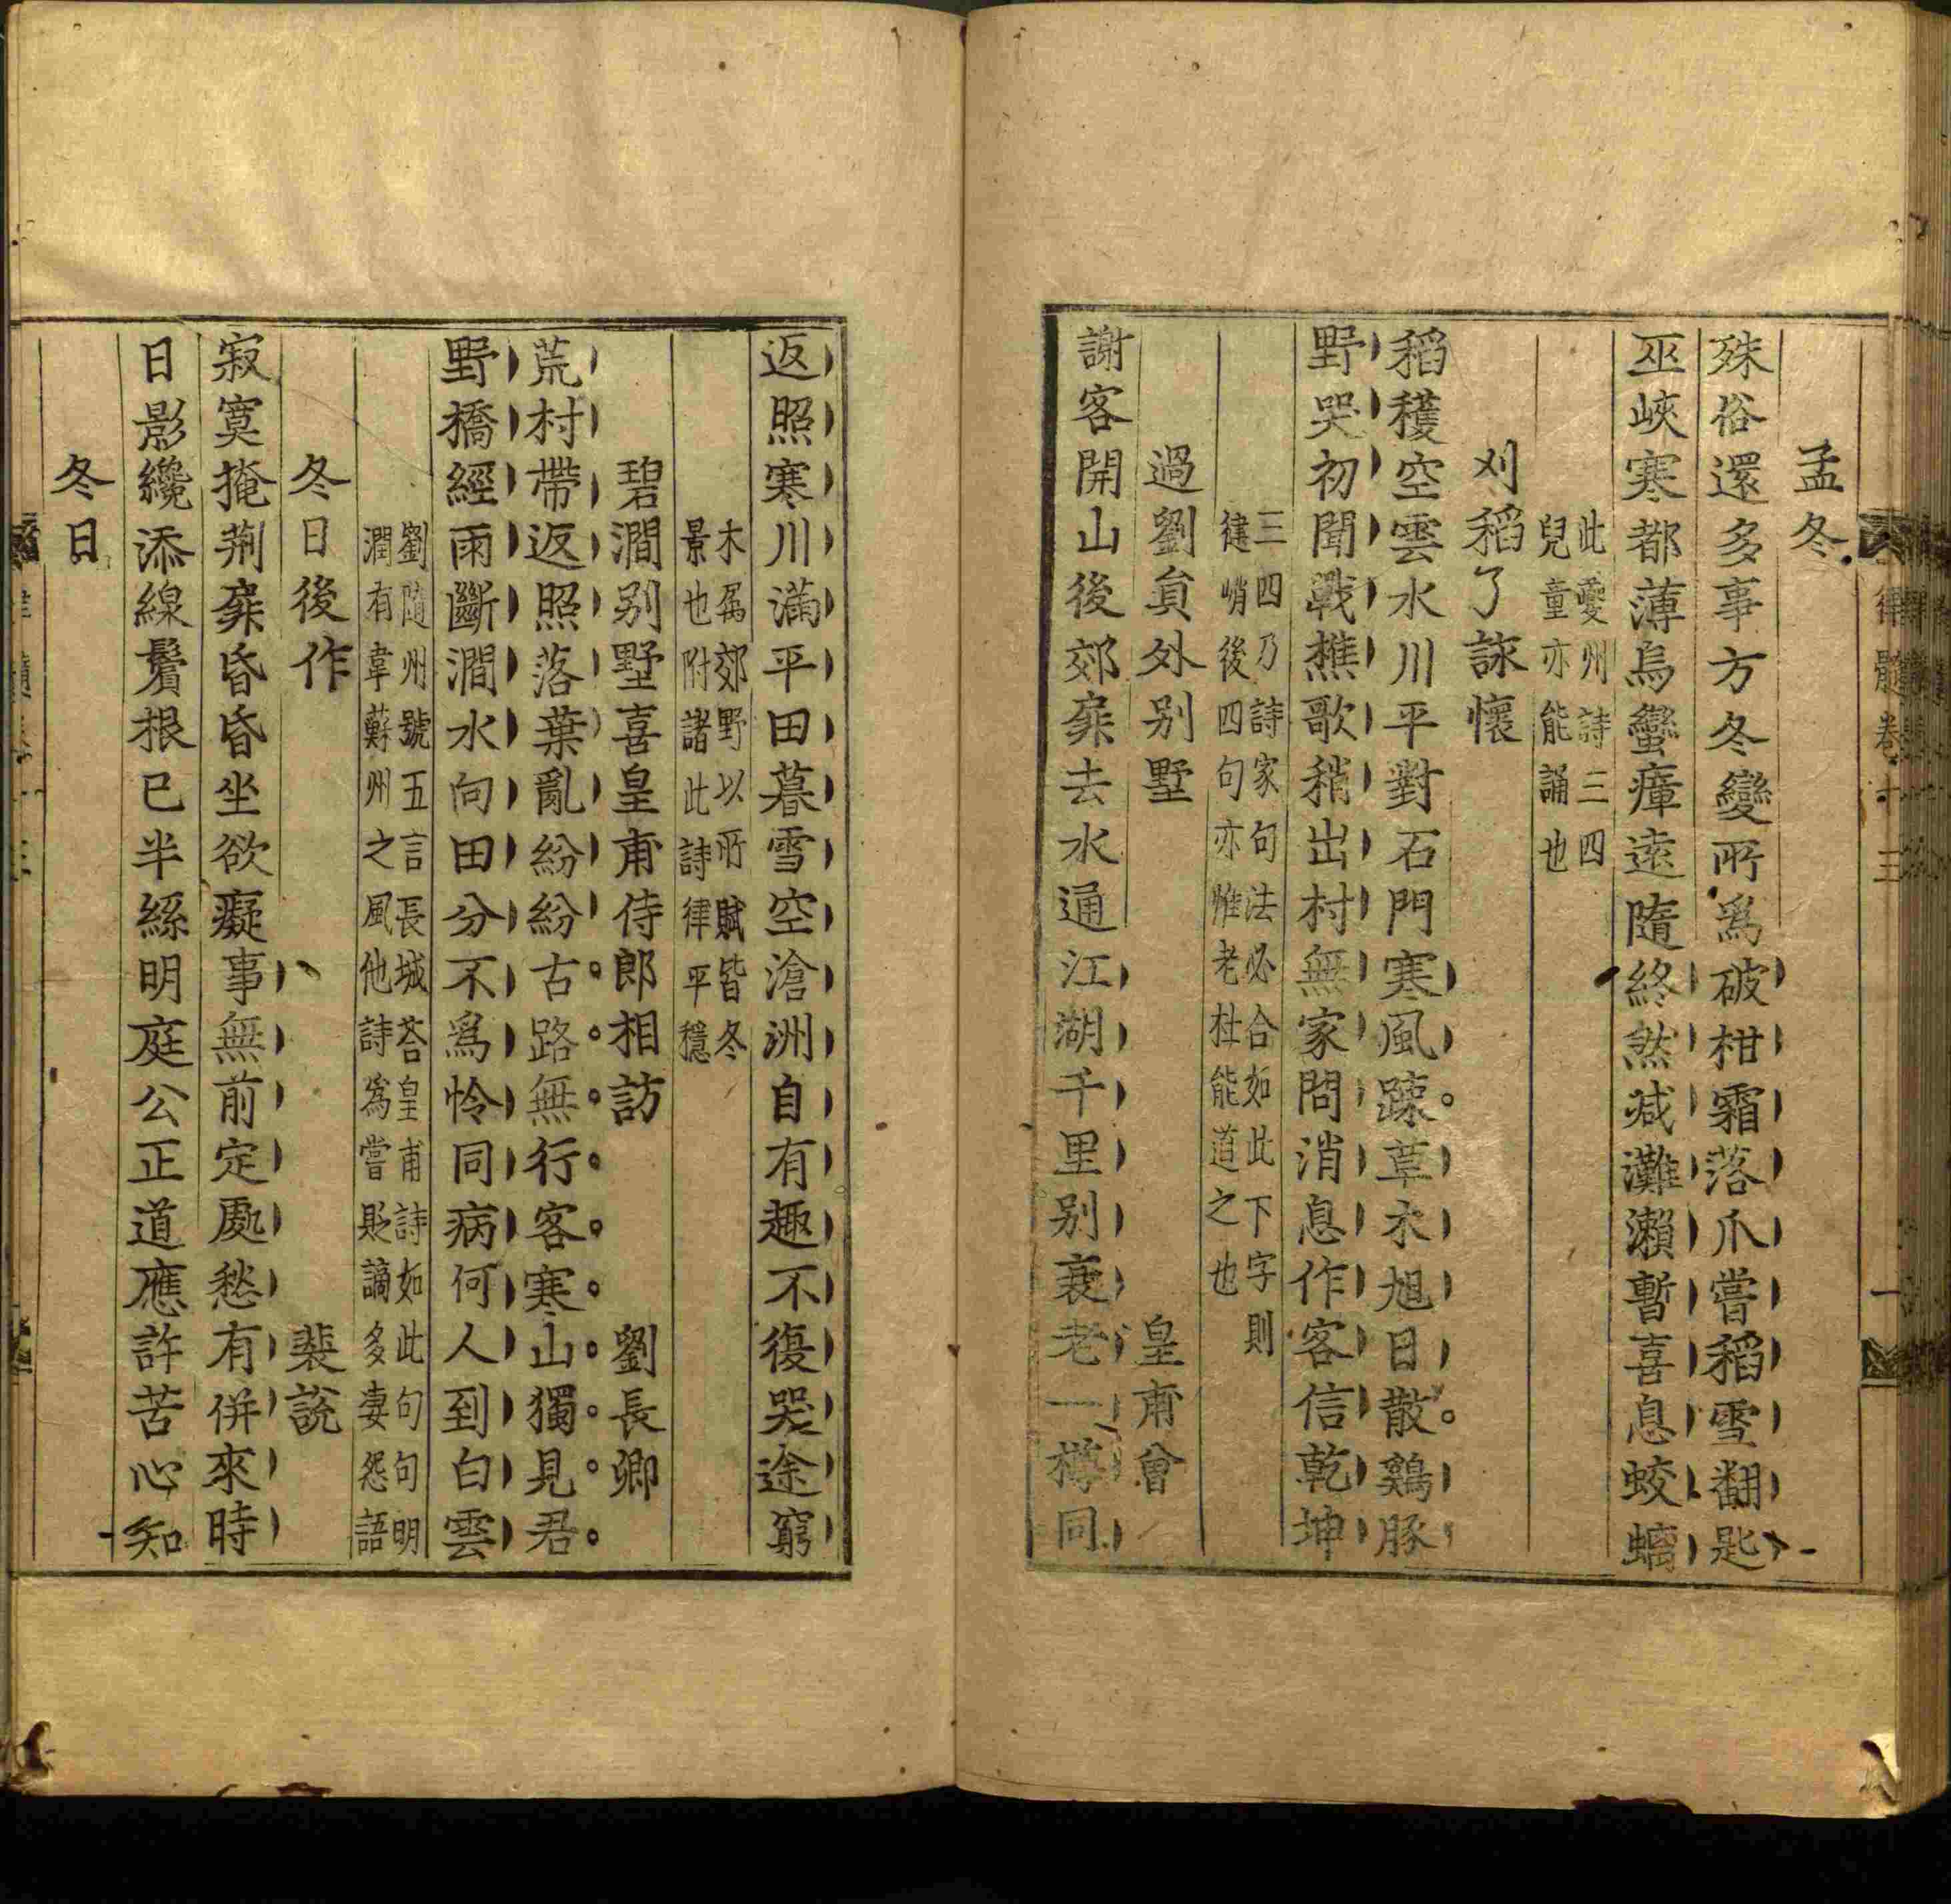 孟冬
殊俗還多事方冬變所爲破柑霜落爪嘗稻雪翻匙
巫峽寒都薄烏蠻瘴遠隨終然减灘瀨暫喜息蛟螭
此夔州詩三四
兒童亦能誦也
刈稻了詠懷
稻穫空雲水川平對石門寒風疎草木旭日散鷄豚
野哭初聞戰樵歌稍出村無家問消息作客信乾坤
三四乃詩家句法必合如此下字則
健峭後四句亦惟老杜能道之也
過劉貟外别墅 皇甫曾
謝客開山後郊扉去水通江湖千里别衰老一樽同
返照寒川滿平田暮雪空滄洲自有趣不復哭途窮
木属郊野以所賦皆冬
景也附諸此詩律平穩
碧澗别墅喜皇甫侍郎相訪 劉長卿
荒村帶返照落葉亂紛紛古路無行客寒山獨見君
野橋經雨斷澗水向田分不爲怜同病何人到白雲
劉隨州號五言長城荅皇甫詩如此句句明
潤有韋蘇州之風他詩爲嘗貶謫多凄怨語
冬日後作 裴說
寂寞掩荆扉昏昏坐欲癡事無前定處愁有併來時
日影纔添線鬢根已半絲明庭公正道應許苦心知
冬日
律髓卷十三 一